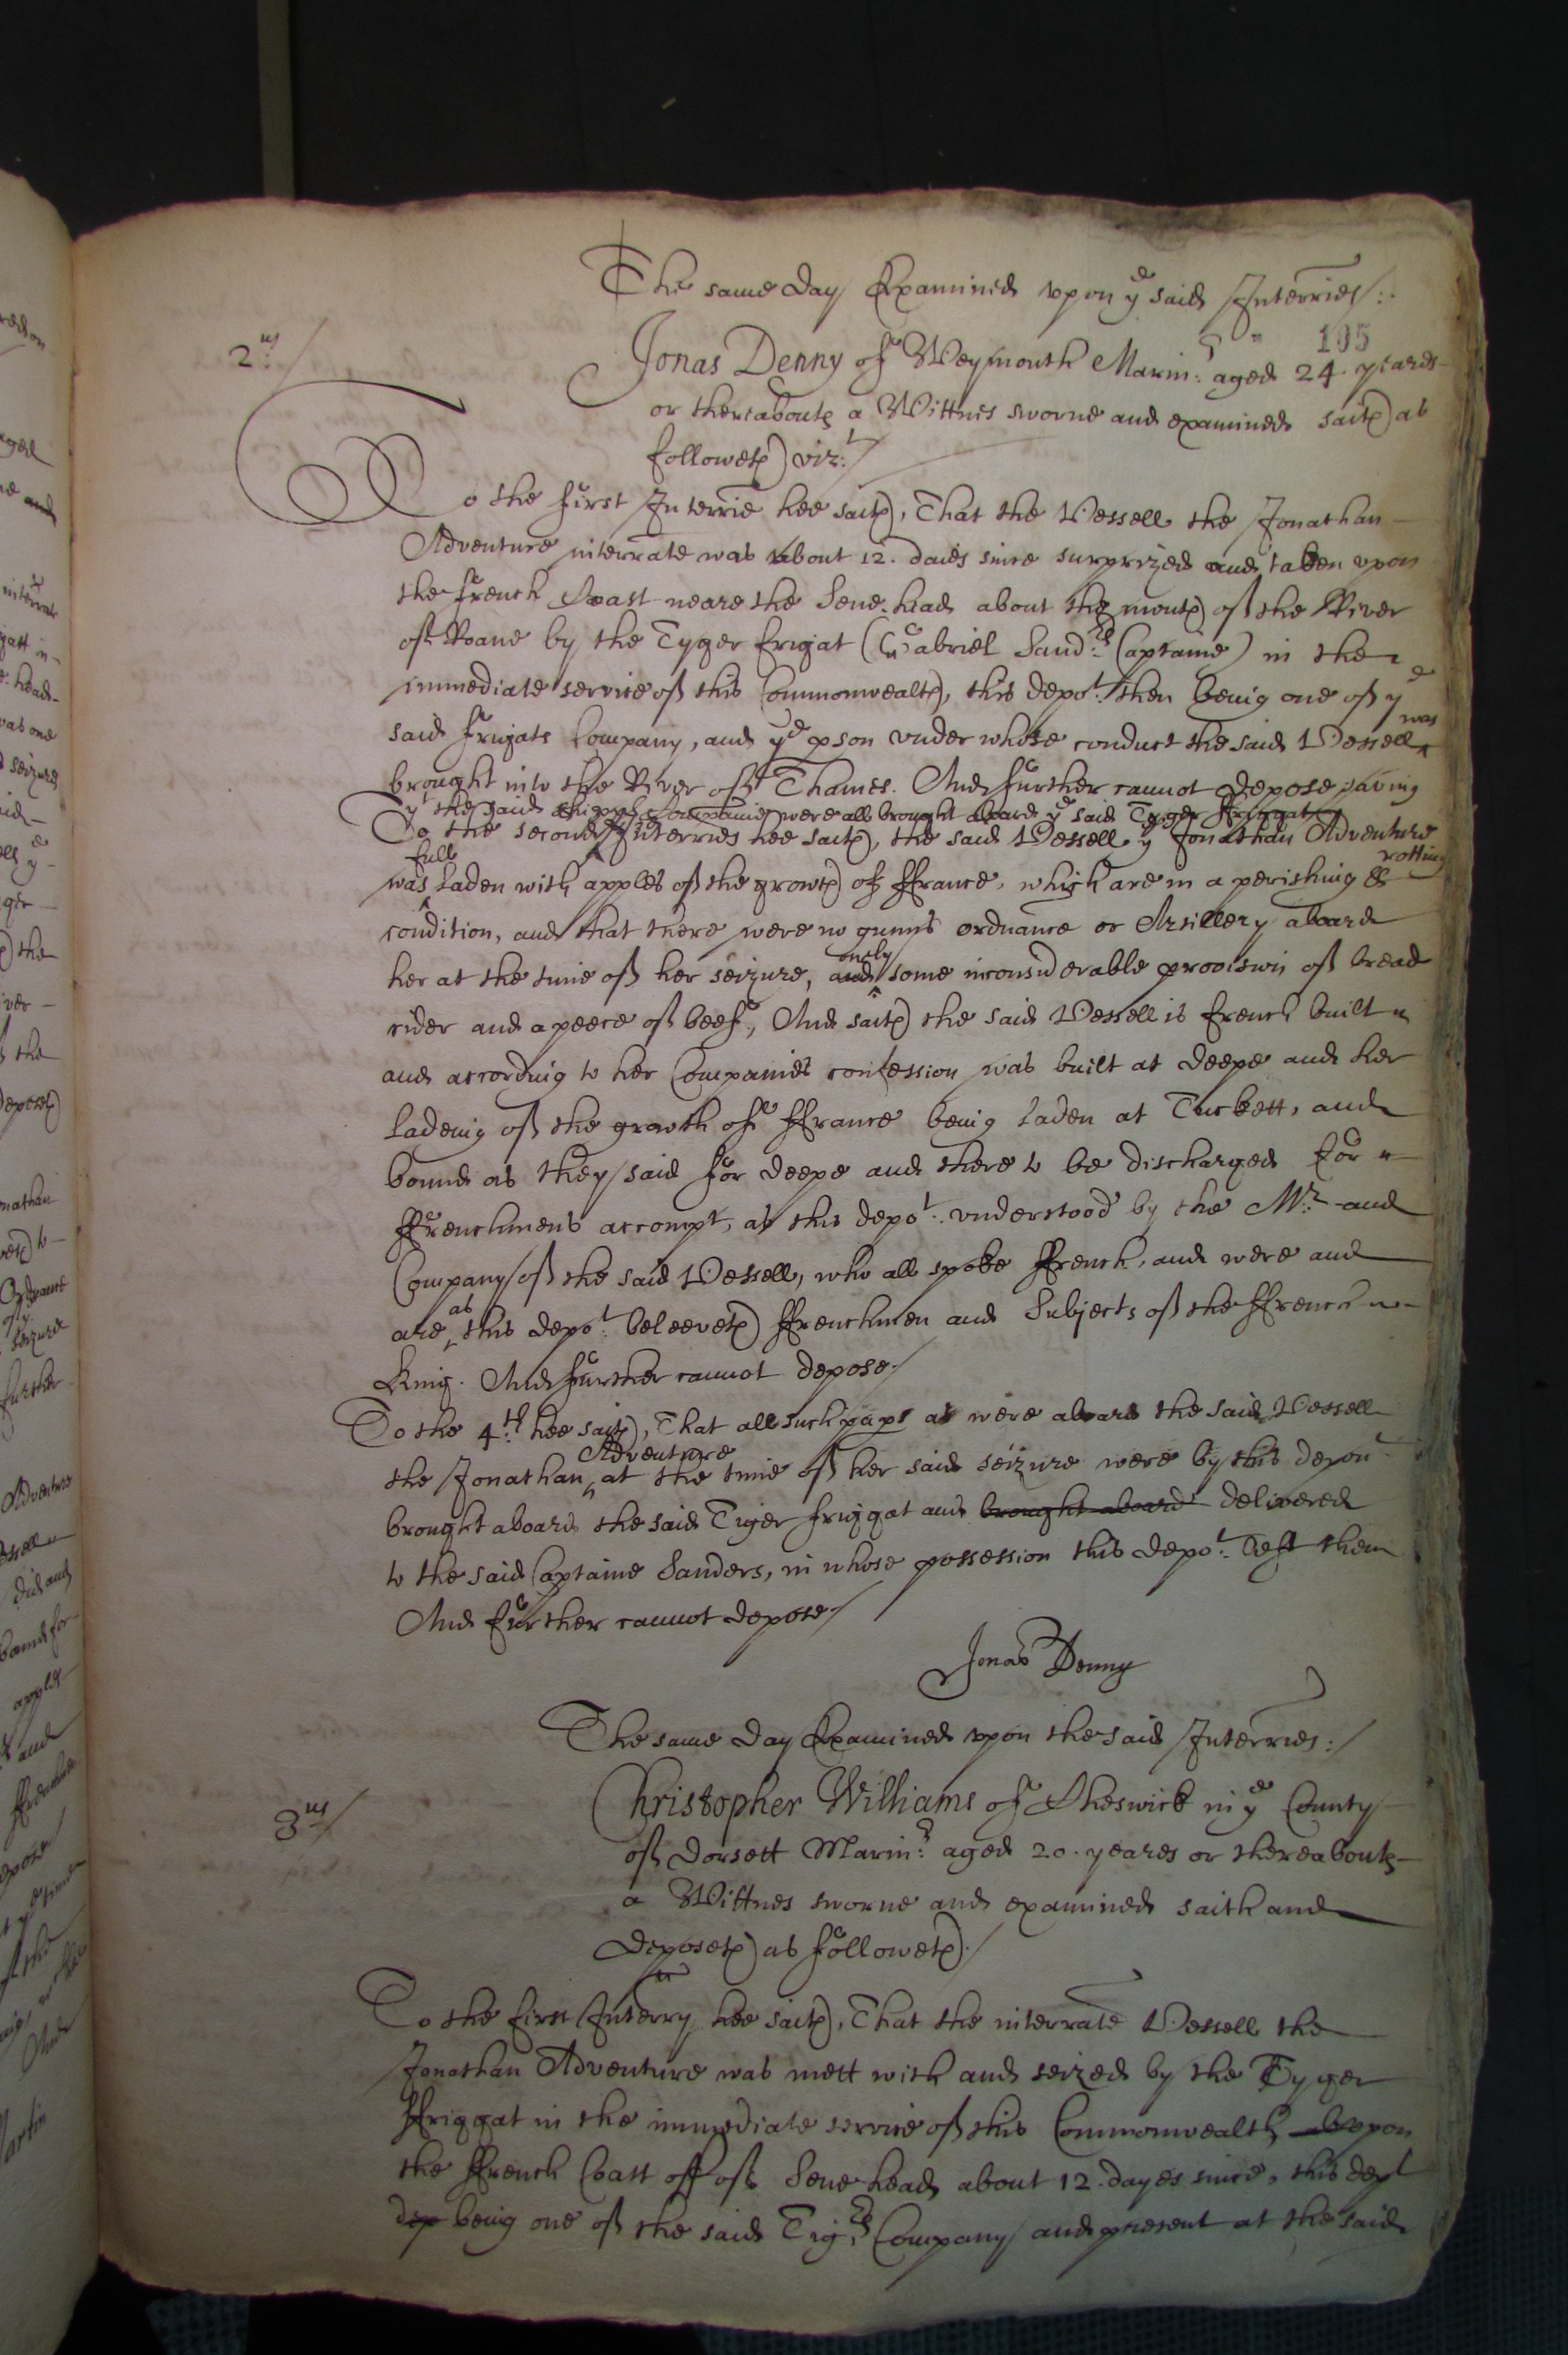 The same day Examined upon ye said Interries:
105
2us
Jonas Denny of Weymouth Marinr: aged 24. yeares
or thereabouts a Wittnes sworne and examined saith as
followeth vizt:
To the first Interrie hee saith, That the Vessell the Jonathan
Adventure interrate was about 12. daies since surprized and taken upon
the french Coast neare the Sene-head about the mouth of the River
of Roane by the Tyger frigat (Gabriel Sandrs: Captaine) in the
immediate service of this Commonwealth, this depot: then being one of ye
said frigats Company, and ye pson under whose conduct the said Vessell was
brought into the River of Thames. And further cannot depose saving
yt the said Companie were all brought aboard ye said Tyger ffriggat
To the second Interries hee saith, the said Vessell ye Jonathan Adventure
was full laden with apples of the growth of ffrance, which are in a perishing & rotting
condition, and that there were no gunns ordnance or Artillery aboard
her at the time of her seizure, and only some inconsiderable provision of bread
cider and a peece of beef, And saith the said Vessell is french built
and according to her Companies confession was built at deepe and her
ladeing of the growth of ffrance being laden at Tuckett, and
bound as they said for deepe and there to be discharged for
ffrenchmens accompt, as this depot: understood by the Mr: and
Company of the said Vessell, who all spoke ffrench, and were and
are as this depot: beleeveth ffrenchmen and Subjects of the ffrench
King. And further cannot depose.
To the 4th: hee saith, That all such paps as were aboard the said Vessell
the Jonathan Adventure at the time of her said seizure were by this depont
brought aboard the said Tiger friggat and brought aboard delivered
to the said Captaine Sanders, in whose possession this depot: left them
And further cannot depose.
Jonas Denny
The same day Examined upon the said Interries:
3us
Christopher Williams of Cheswick in ye County
of Dorsett Marinr: aged 20. yeares or thereabouts
a Wittnes sworne and examined saith and
deposeth as followeth.
To the first Interry hee saith, That the interrate Vessell the
Jonathan Adventure was mett with and seized by the Tyger
ffriggat in the immediate service of this Commonwealth upon
the ffrench Coast off of Sene head about 12. dayes since, this dept
dep being one of the said Tigrs Company and present at the said